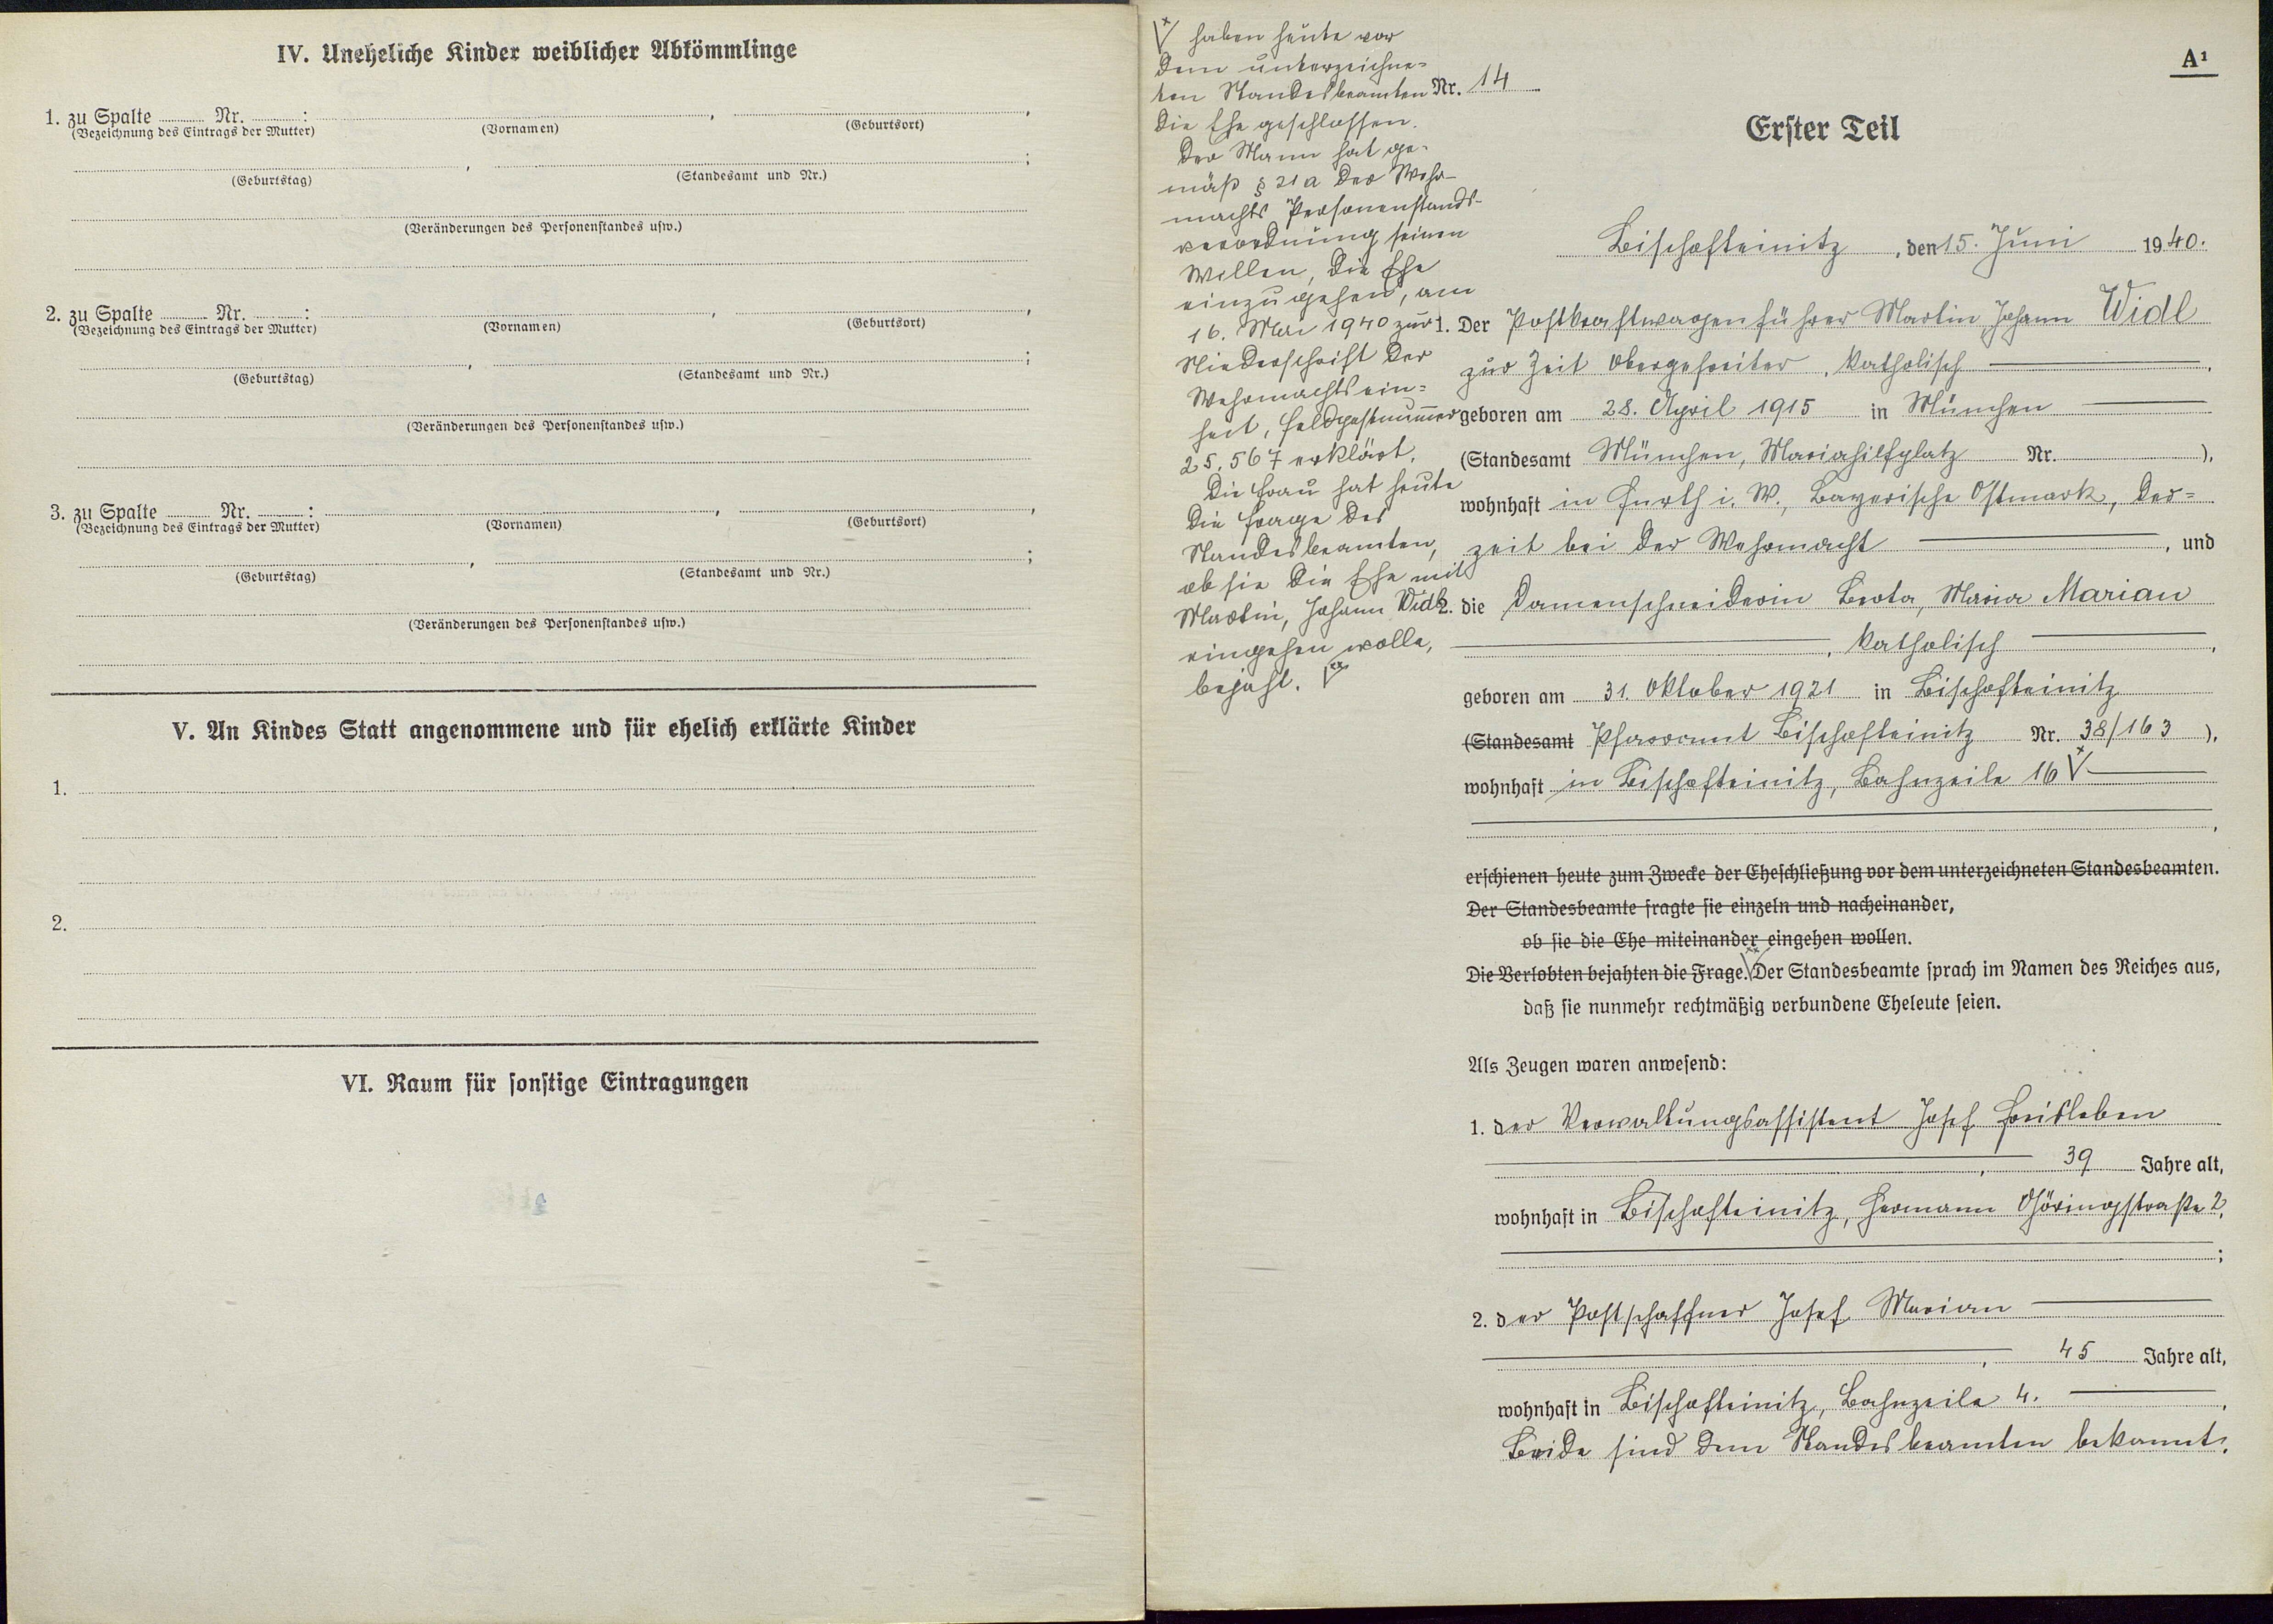 IV. Uneheliche Kinder weiblicher Abkömmlinge
1. zu Spalte ........ Nr. ........ :
(Bezeichnung des Eintrags der Mutter) (Vornamen) (Geburtsort)
(Geburtstag) (Standesamt und Nr.)
(Veränderungen des Personenstandes usw.)
2. zu Spalte ........ Nr. ........ :
(Bezeichnung des Eintrags der Mutter) (Vornamen) (Geburtsort)
(Geburtstag) (Standesamt und Nr.)
(Veränderungen des Personenstandes usw.)
3. zu Spalte ........ Nr. ........ :
(Bezeichnung des Eintrags der Mutter) (Vornamen) (Geburtsort)
(Geburtstag) (Standesamt und Nr.)
(Veränderungen des Personenstandes usw.)
V. An Kindes Statt angenommene und für ehelich erklärte Kinder
1.
2.
VI. Raum für sonstige Eintragungen
haben heute vor
dem unterzeichne=
ten Standesbeamten
die Ehe geschlossen.
Der Mann hat ge-
mäß § 21a der Wehr-
machts Personenstands-
verordnung seinen
Willen, die Ehe
einzugehen, am
16. Mai 1940 zur
Niederschrift der
Wehrmachtsein=
heit, Feldpostnummer
25.567 erklärt.
Die Frau hat heute
die Frage des
Standesbeamten,
ob sie die Ehe mit
Martin, Johann Widl
eingehen wolle,
bejaht.
A¹
Nr. 14
Erster Teil
Bischofteinitz, den 15. Juni 1940.
1. Der Postkraftwagenführer Martin, Johann Widl
zur Zeit Obergefreiter, katholisch
geboren am 28. April 1915 in München
(Standesamt München, Mariahilfplatz Nr. ),
wohnhaft in Furth i. W., Bayerische Ostmark, der=
zeit bei der Wehrmacht, und
2. die Damenschneiderin Berta, Maria Marian
, katholisch,
geboren am 31. Oktober 1921 in Bischofteinitz
(Standesamt Pfarramt Bischofteinitz Nr. 38/163 ),
wohnhaft in Bischofteinitz, Bahnzeile 16
erschienen heute zum Zwecke der Eheschließung vor dem unterzeichneten Standesbeamten.
Der Standesbeamte fragte sie einzeln und nacheinander,
ob sie die Ehe miteinander eingehen wollen.
Die Verlobten bejahten die Frage. Der Standesbeamte sprach im Namen des Reiches aus,
daß sie nunmehr rechtmäßig verbundene Eheleute seien.
Als Zeugen waren anwesend:
1. der Verwaltungsassistent Josef
, 39 Jahre alt,
wohnhaft in Bischofteinitz, Hermann Göringstraße 2,
;
2. der Postschaffner Josef Marian
, 45 Jahre alt,
wohnhaft in Bischofteinitz, Bahnzeile 4.
Beide sind dem Standesbeamten bekannt.